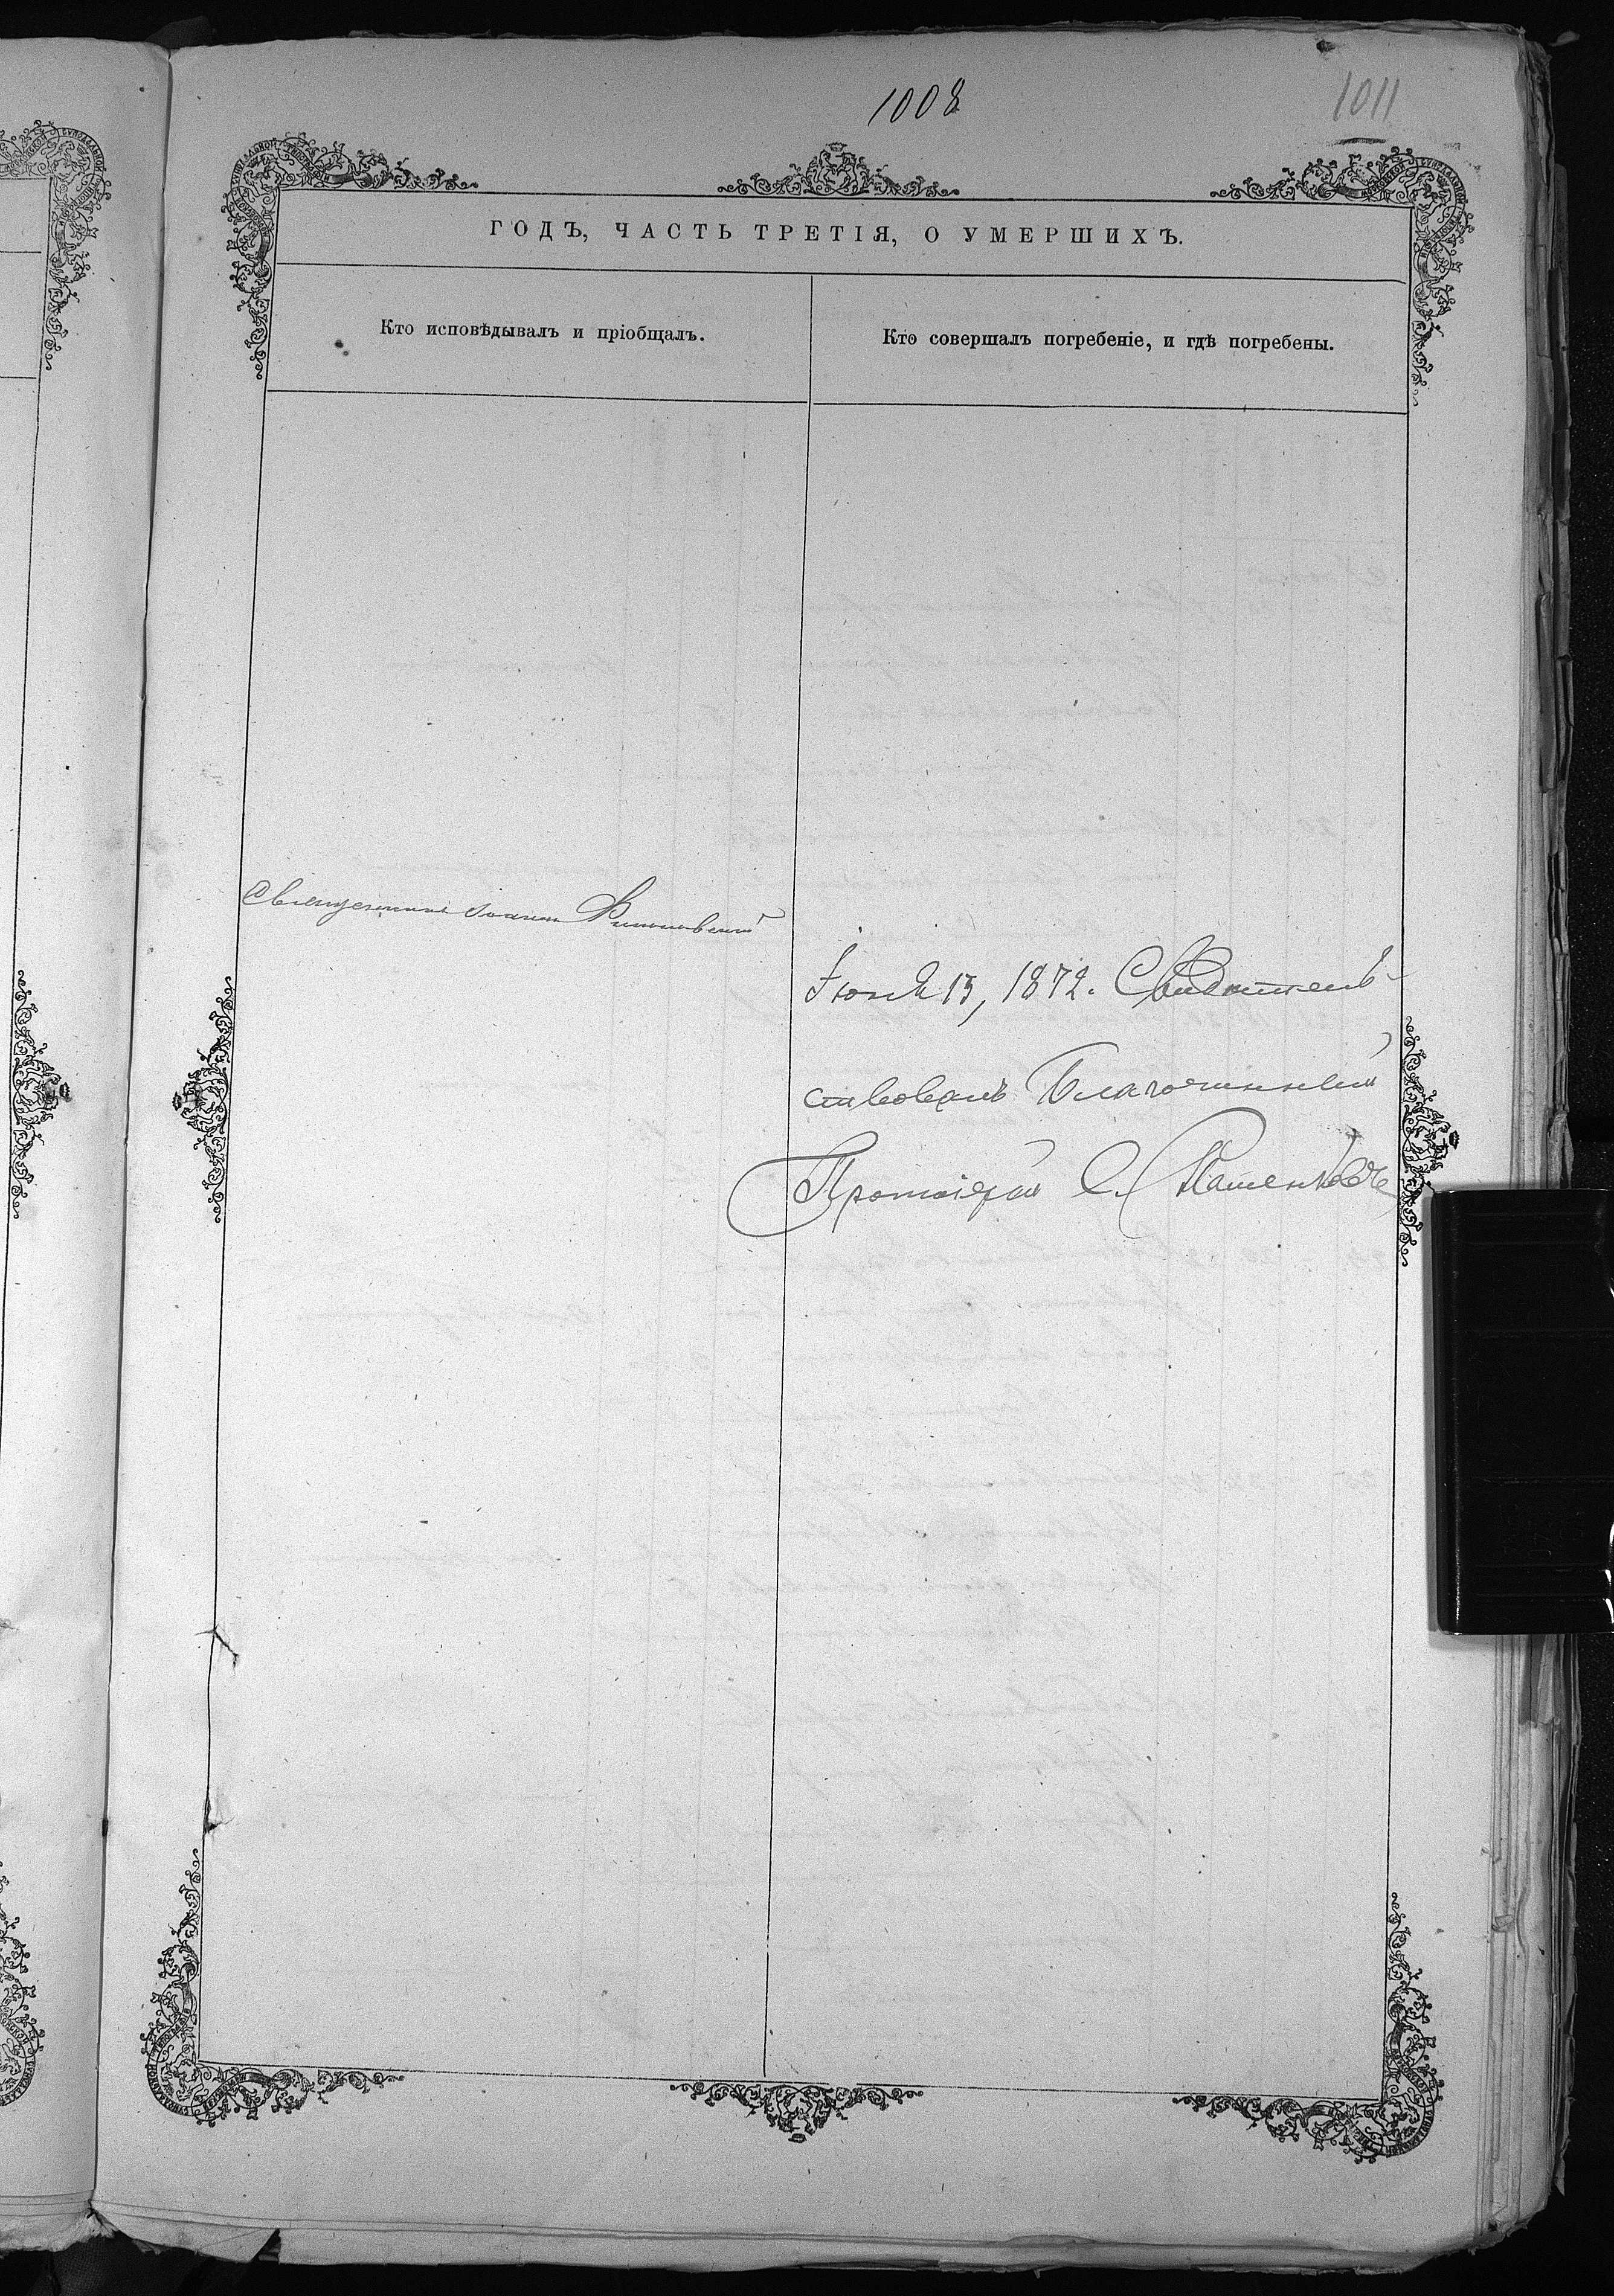 1008
1011
ГОДЪ, ЧАСТЬ ТРЕТІЯ, О УМЕРШИХЪ.
Кто исповѣдывалъ и пріобщалъ.
Кто совершалъ погребеніе, и гдѣ погребены.
Священникъ Іоаннъ
Іюня 15, 1872. Свидѣтель-
ствовалъ Благочинный
Протоіерей С.